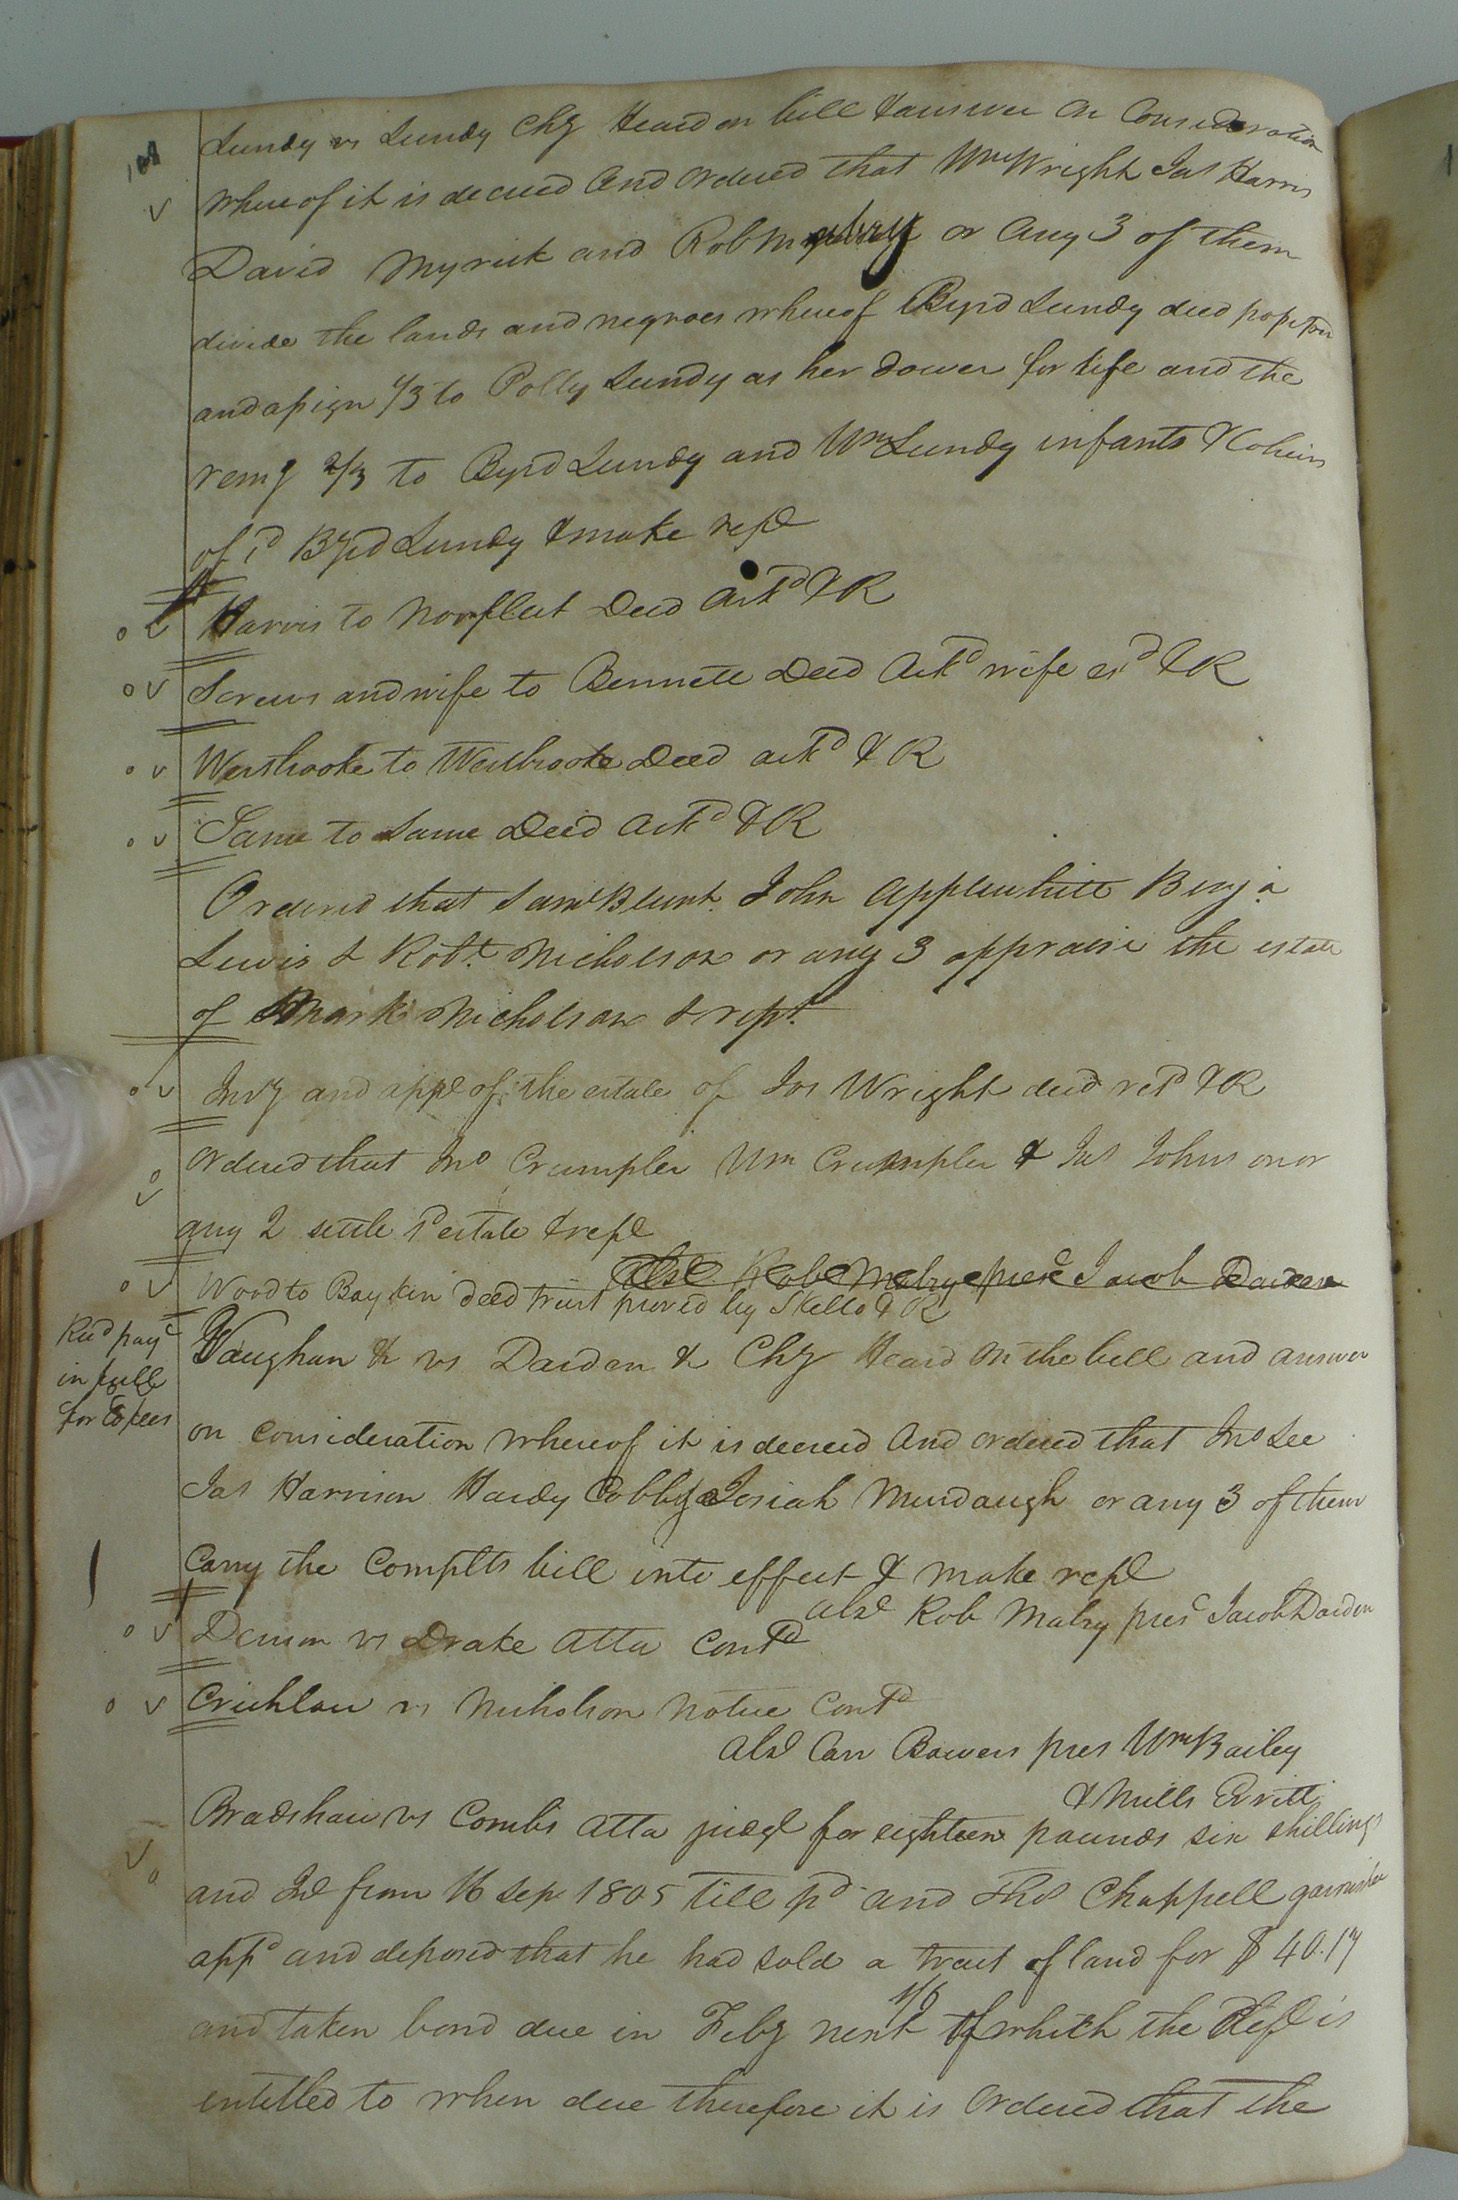 Lundy vs Lundy Chy Heard on bill & answer On Consideration
whereof it is decreed And ordered that Wm Wright Jas Harris
David Myrick and Rob Mabry or any 3 of them
divide the lands and negroes whereof Byrd Lundy died possessed
and assign 1/3 to Polly Lundy as her dower for life and the
remg 2/3 to Byrd Lundy and Wm Lundy infants & Coheirs
of sd Byrd Lundy & make rept
Harris to Norfleet Deed Ackd & R
Screws and wife to Bennett Deed Ackd wife exd & R
Westbrooke to Westbrooke Deed ackd & R
Same to Same Deed Ackd & R
Ordered that Saml Blunt John Applewhite Benja
Lewis & Robt Nicholson or any 3 appraise the estate
of Mark Nicholson & rept
Invy and appt of the estate of Jos Wright decd retd & R
Ordered that Jno Crumpler Wm Crumpler & Jas Johnson or
any 2 settle sd estate & rept
Abst Robt Mabry prest Jacob Darden
Wood to Boykin deed trust proved by Skello & R
Recd pay
in full
for fees
Vaughan &c vs Darden &c Chy Heard on the bill and answer
on consideration whereof it is decreed And ordered that Jno Lee
Jas Harrison Hardy Cobb & Josiah Murdaugh or any 3 of them
Carry the Complts bill into effect & make rept
Abst Rob Mabry prest Jacob Darden
Denson vs Drake Atta Contd
Crichlow vs Nicholson Notice Contd
Abst Carr Bowers pres Wm Bailey
& Mills Evritt
Bradshaw vs Combs Atta judgt for eighteen pounds six shillings
and Int from 16 Sep 1805 till pd and Thos Chappell garnishee
appd and deposed that he had sold a tract of land for $ 40.17
and taken bond due in Feby next 1/6 of which the Deft is
entitled to when due therefore it is Ordered that the